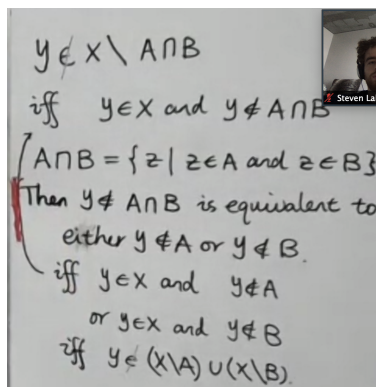 y ∉ X \ A∩B
iff y∈X and y∉A∩B
A∩B = {z| z∈A and z∈B}
Then y∉ A∩B is equivalent to
either y∉A or y∉B.
iff y∈X and y∉A
or y∈X and y∉B
iff y∈(X\A)∪(X\B).
Steven La